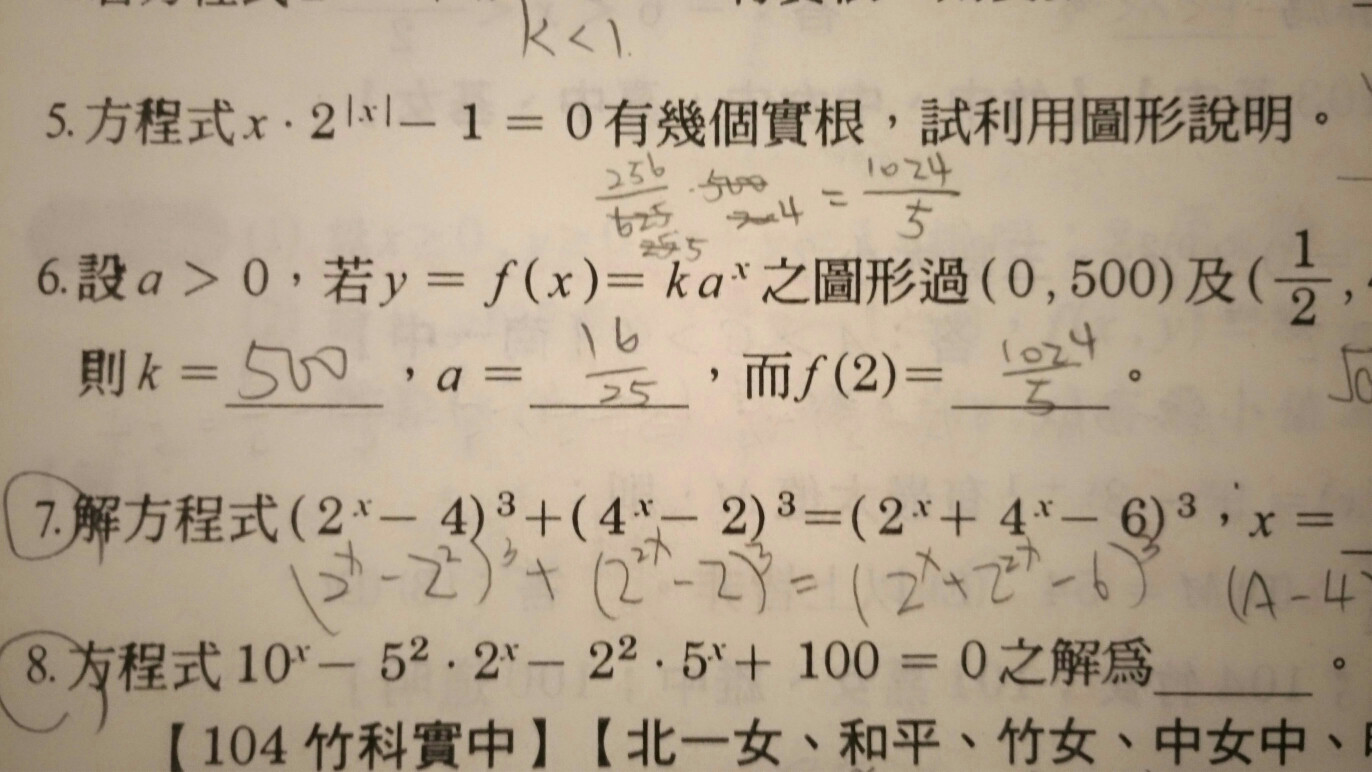 k<1.
5. 方程式 x · 2^|x| − 1 = 0 有幾個實根，試利用圖形說明。
256/625 · 500 4 = 1024/5
25 5
6. 設 a > 0，若 y = f(x) = ka^x 之圖形過(0, 500)及(1/2,
則 k = 500，a = 16/25，而 f(2) = 1024/5。
7. 解方程式(2^x − 4)^3 + (4^x − 2)^3 = (2^x + 4^x − 6)^3，x =
(2^x − 2^2)^3 + (2^2x − 2)^3 = (2^x + 2^2x − 6)^3 (A − 4
8. 方程式 10^x − 5^2 · 2^x − 2^2 · 5^x + 100 = 0 之解為______。
【104 竹科實中】【北一女、和平、竹女、中女中、